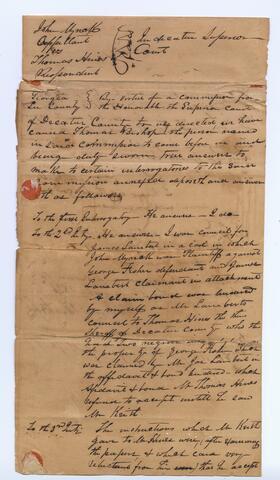 John Mynatt
Appellant
vs
Thomas Hines
Respondent
In decatur Superior
Court
Georgia
By virtue of a commission from
Lee County the Honorable the Superior Court
of Decatur County to me directed I have
caused Thomas the person named
in said commission to come before me and
being duly sworn true answer to
make to certain interrogatories to the
commission annexed deposeth and answereth
as follows
To the first Interrogatory He answers I do
To the 2nd He answers I was council for
James Lambert in a case in which
John Mynatt was Plaintiff against
George Fisher defendant and James
Lambert claimant in attachment
A claim bond was
by myself as Mr Lamberts
council to Thomas Hines the then
Sheriff of Decatur County who the
two negroes
the property of George Fisher
was claimed by Mr Lambert in
the affidavit & bond which
Affidavit & bond Mr Thomas Hines
refused to accept until he saw
Mr Keith
To the 3rd The instructions which Mr Keith
gave to Mr Hines were, after examining
the papers & which were very
reluctant from him was, that he accept